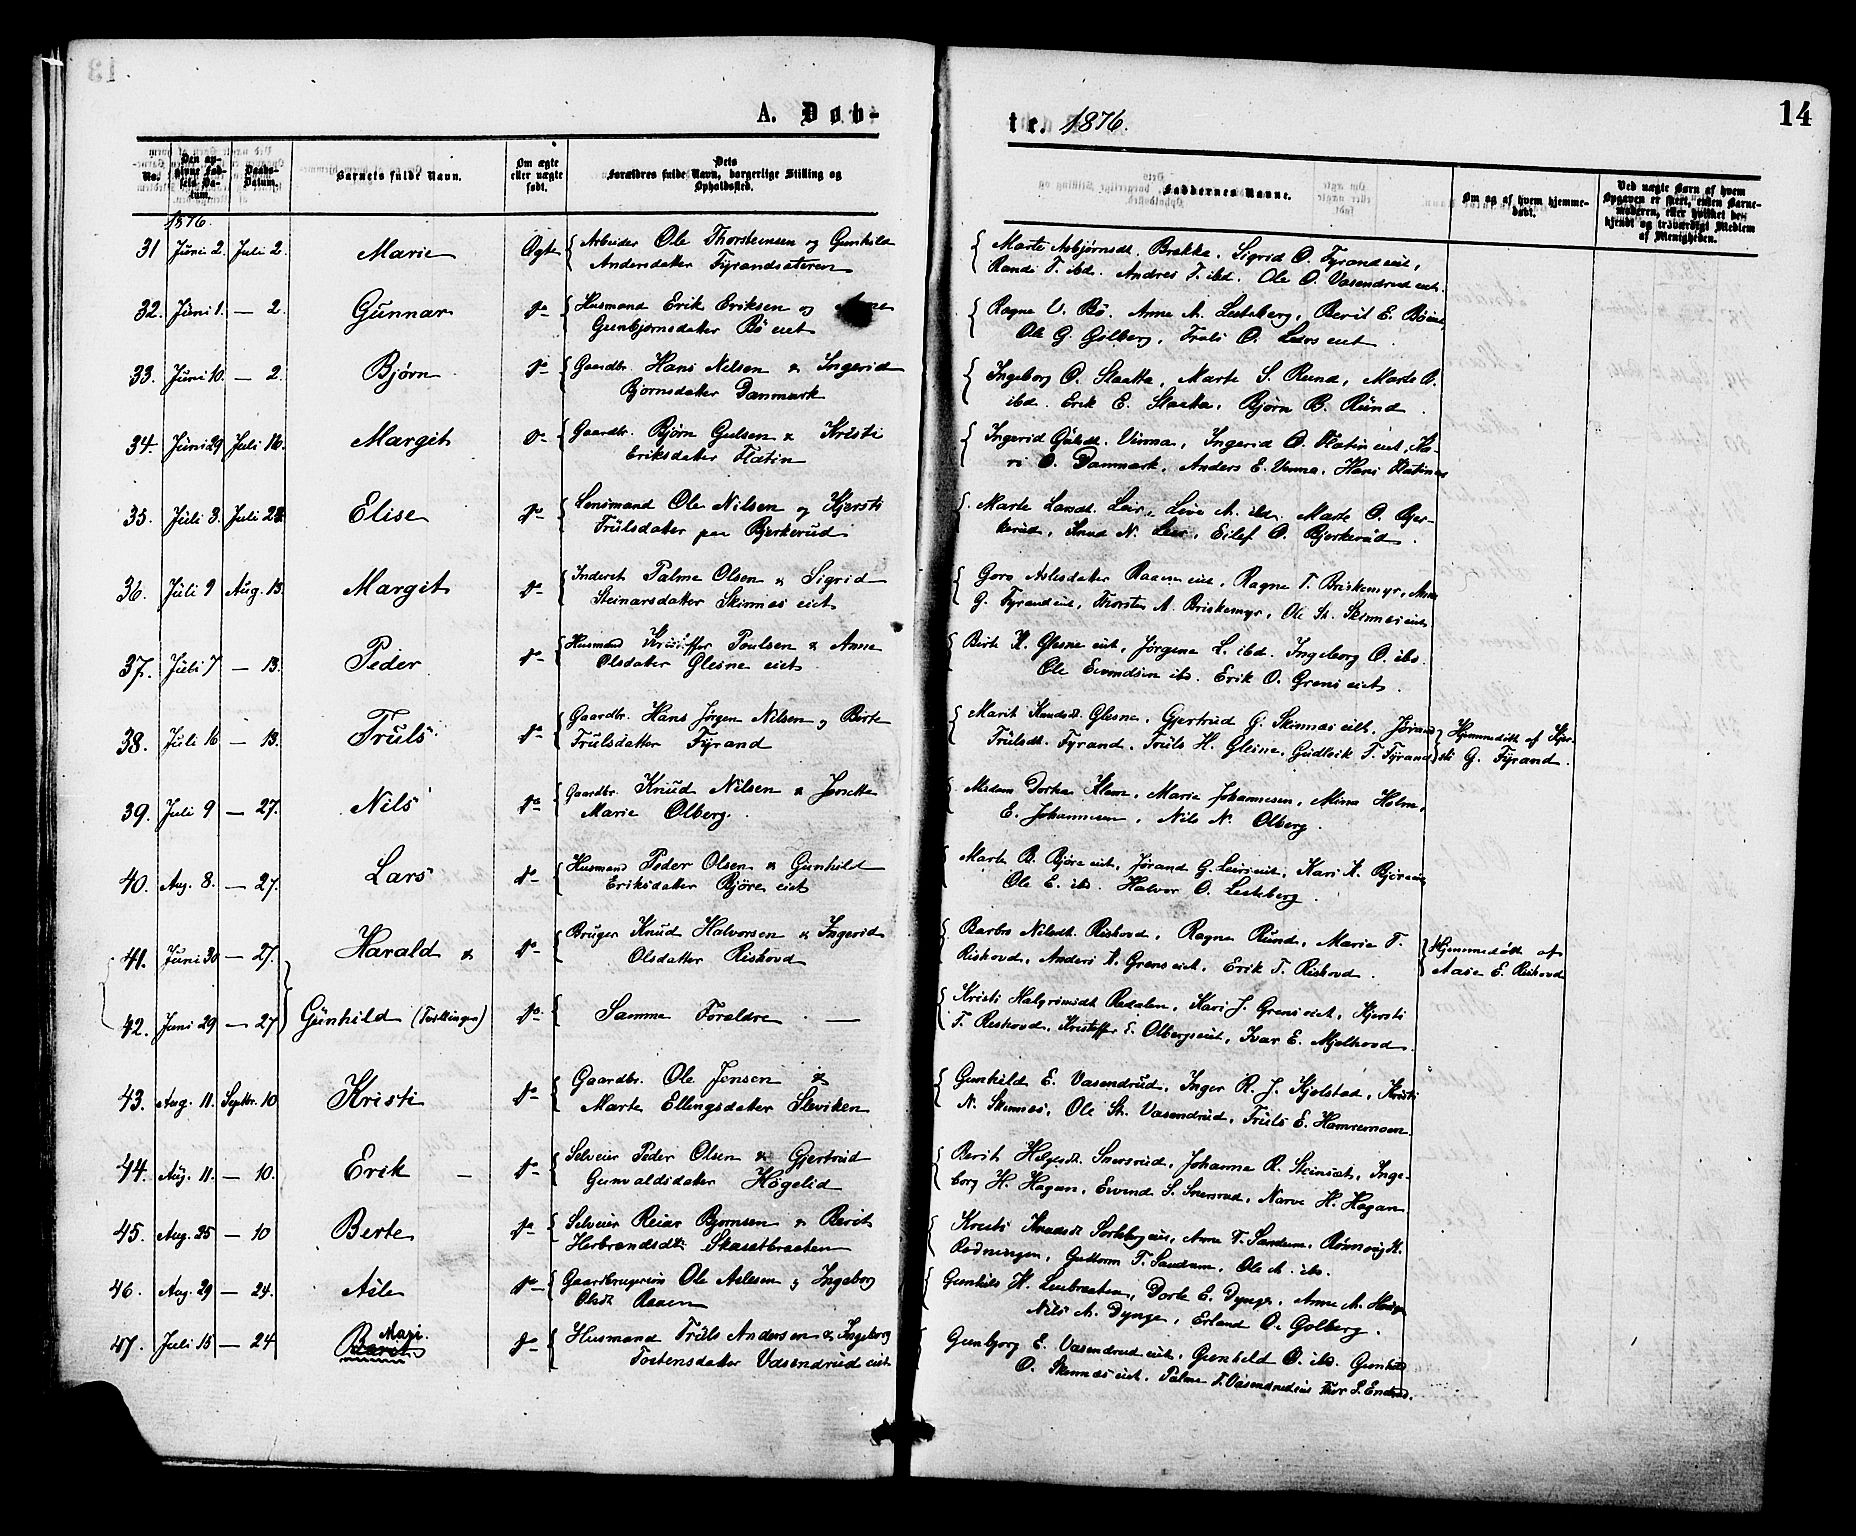 A. Døb-
te. 1876.
14
No.
Den op-
givne Fød-
sels Da-
tum.
Daabs-
Datum.
Barnets fulde Navn.
Om ægte
eller uægte
født.
Dets
Forældres fulde Navn, borgerlige Stilling og
Opholdssted.
Faddernes Navne.
Om og af hvem hjemme-
døbt.
Ved uægte Børn af hvem
Opgaven er skeet, enten Barne-
moderen, eller hvilket be-
kjendt og troværdigt Medlem
af Menigheden.
1876.
31 Juni 2. Juli 2. Marie Ægte Arbeider Ole Thorsteinsen og Gunhild
Andersdatter Fyrandsæteren
Marte Asbjørnsdt. Brekke, Sigrid O. Fyrand eiet,
Randi T. ibd. Andres T. ibd. Ole O. Vasendrud eiet.
32. Juni 1. — 2. Gunnar do Husmand Erik Eriksen og Anne
Gunbjørnsdatter Bö eiet
Ragne O. Bö. Anne A. Lesteberg, Berit E. Bö eiet
Ole G. Golberg, Truls O. eiet
33. Juni 10. — 2. Bjørn do Gaardbr. Hans Nilsen & Ingerid
Bjornsdatter Danmark
Ingeborg O. Slaatta, Marte S. Rund, Marte O.
ibd. Erik E. Slaatta, Bjørn B. Rund
34. Juni 29 Juli 16. Margit do Gaardbr. Bjørn Gulsen & Kristi
Eriksdatter Flatin
Ingerid Gulsdt. Vinna, Ingerid O. Flatin eiet, Ka-
ri O. Danmark, Anders E. Venna, Hans Flatin
35. Juli 3. Juli 23. Elise do Lensmand Ole Nilsen og Kjersti
Trulsdatter paa Bjerkerud
Marte Larsdt. Leir, Live A. ibd. Marte O. Bjer-
kerud, Knud N. Leir, Eilef O. Bjerkerud.
36. Juli 9 Aug. 13. Margit do Inderst Palme Olsen & Sigrid
Steinarsdatter Skinnes eiet
Goro Aslesdatter Raaen eiet, Ragne T. Briskemyr, Anne
G. Fyrand eiet, Thorsten A. Briskemyr, Ole St. Skinnes eiet
37. Juli 7 — 13. Peder do Husmand Kristoffer Poulsen & Anne
Olsdatter Glesne eiet
Birte K. Glesne eiet, Jörgine L. ibd. Ingeborg O. ibd.
Ole Eivindsen ibd. Erik O. Grens eiet.
38. Juli 16 — 13. Truls do Gaardbr. Hans Jørgen Nilsen og Birte
Trulsdatter Fyrand
Marit Knudsdt. Glesne, Gjertrud G. Skinnes eiet, Jørand
Trulsdt. Fyrand, Truls H. Glesne, Gudleik T. Fyrand
Hjemmedöbt af Kjer-
sti G. Fyrand.
39. Juli 9 — 27. Nils do Gaardbr. Knud Nilsen & Jonette
Marie Olberg.
Madam Dorthea Klem, Marie Johannesen, Mina Holm,
E. Johannesen, Nils N. Olberg.
40. Aug. 8. — 27. Lars do Husmand Peder Olsen & Gunhild
Eriksdatter Björe eiet
Marte B. Björe eiet, Jørand G. Leirs eiet, Kari K. Björe eiet
Ole E. ibd. Halvor O. Lesteberg.
41. Juni 30 — 27. Harald & do Bruger Knud Halvorsen & Ingerid
Olsdatter Rishovd
Barbro Nilsdt. Rishovd, Ragne Rund, Marie T.
Rishovd, Anders K. Grens eiet, Erik T. Rishovd.
Hjemmedöbt af
Aase E. Rishovd
42. Juni 29 — 27 Gunhild (Tvillinger) do Samme Forældre —
Kristi Halgrimsdt. Redalen, Kari J. Grens eiet, Kjersti
T. Rishovd, Kristoffer E. Olbergs eiet, Ivar E. Mjølhovd.
43. Aug. 11. Septbr. 10 Kristi do Gaardbr. Ole Jensen &
Marte Ellingsdatter Sleviken
Gunhild E. Vasendrud, Inger R. J. Kjølstad, Kristi
N. Skinnes, Ole St. Vasendrud, Truls E. Hamremoen.
44. Aug. 11. — 10. Erik — do Selveier Peder Olsen & Gjertrud
Gunvaldsdatter Högelid
Berit Helgesdt. Snersrud, Johanne R. Steinsæt, Inge-
borg H. Hagan, Eivind S. Snersrud, Narve H. Hagan.
45. Aug. 25 — 10 Berte do Selveier Reiar Bjornsen & Berit
Herbrandsdtr Skasetbraaten
Kristi Knudsdt Sorteberg eiet, Anne T. Sandum, Rønnaug K.
Rodningen, Guttorm T. Sandum, Ole A. ibd.
46. Aug. 29 — 24. Asle do Gaardbrugersön Ole Aslesen og Ingeborg
Olsdt. Raaen
Gunhild H. Leubraaten, Dorte E. Dynge, Anne A.
Nils A. Dynge, Erland O. Golberg.
47. Juli 15 — 24 Mari. Berit do Husmand Truls Andersen & Ingeborg
Tostensdatter Vasendrud eiet
Gunbjorg E. Vasendrud eiet, Gunhild O. ibd. Gunhild
O. Skinnes eiet. Palme T. Vasendrud eiet Thor P. Enderud.